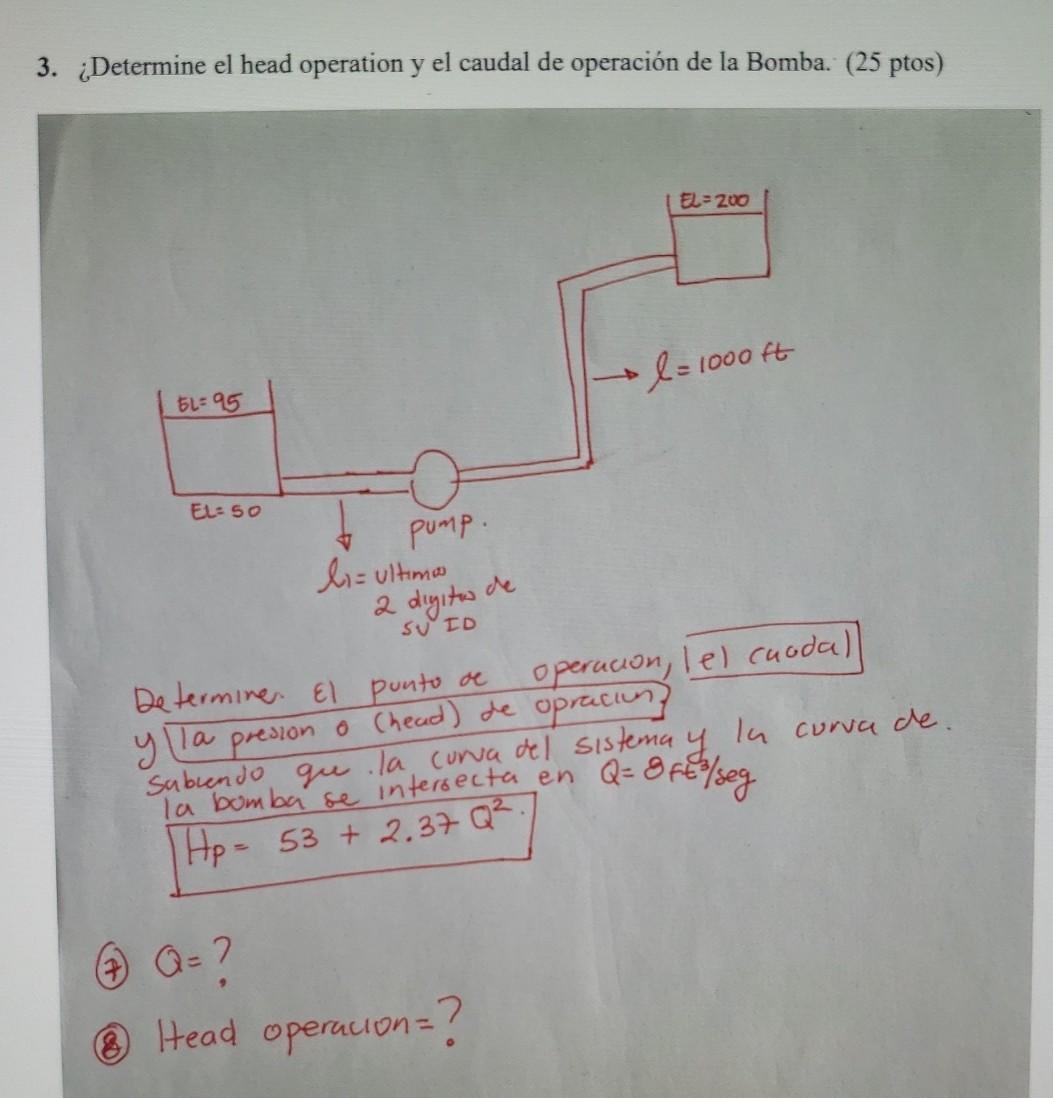 3. ¿Determine el head operation y el caudal de operación de la Bomba. (25 ptos)
EL=200
l=1000 ft
EL=95
EL=50
pump.
l1=ultimos
2 digitos de
SU ID
Determine El punto de operacion, el caudal
y la presion o (head) de opracion
Sabiendo que la curva del sistema y la curva de.
la bomba se intersecta en Q=8Ft³/seg
Hp= 53 + 2.37 Q².
7 Q=?
8 Head operacion=?